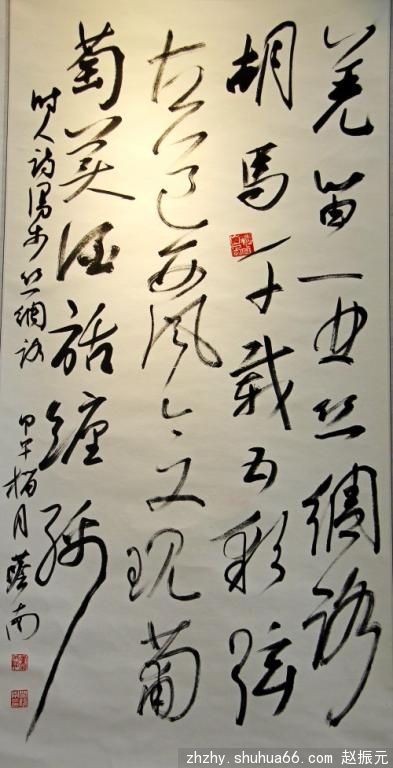 羌笛一曲丝绸路
胡马千载五彩弦
古道西风今又现葡
萄美酒话缠绵
时人诗漫步丝绸路
甲午榴月 南
zhzhy.shuhua66.com 赵振元